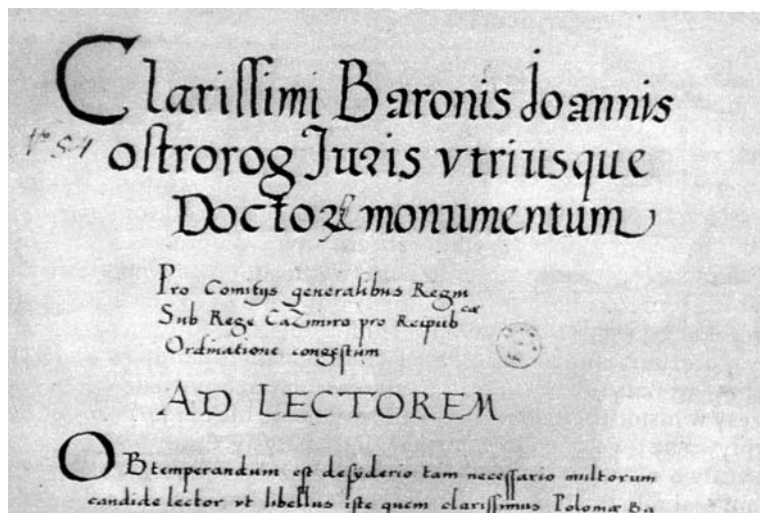 Clarissimi Baronis Joannis
ostrorog Juris vtriusque
Doctoris monumentum
Pro Comitijs generalibus Regni
Sub Rege Cazimiro pro Reipub^cae
Ordinatione congestum
AD LECTOREM
OBtemperandum est desyderio tam necessario multorum
candide lector vt libellus iste quem clarissimus Poloniæ Ba